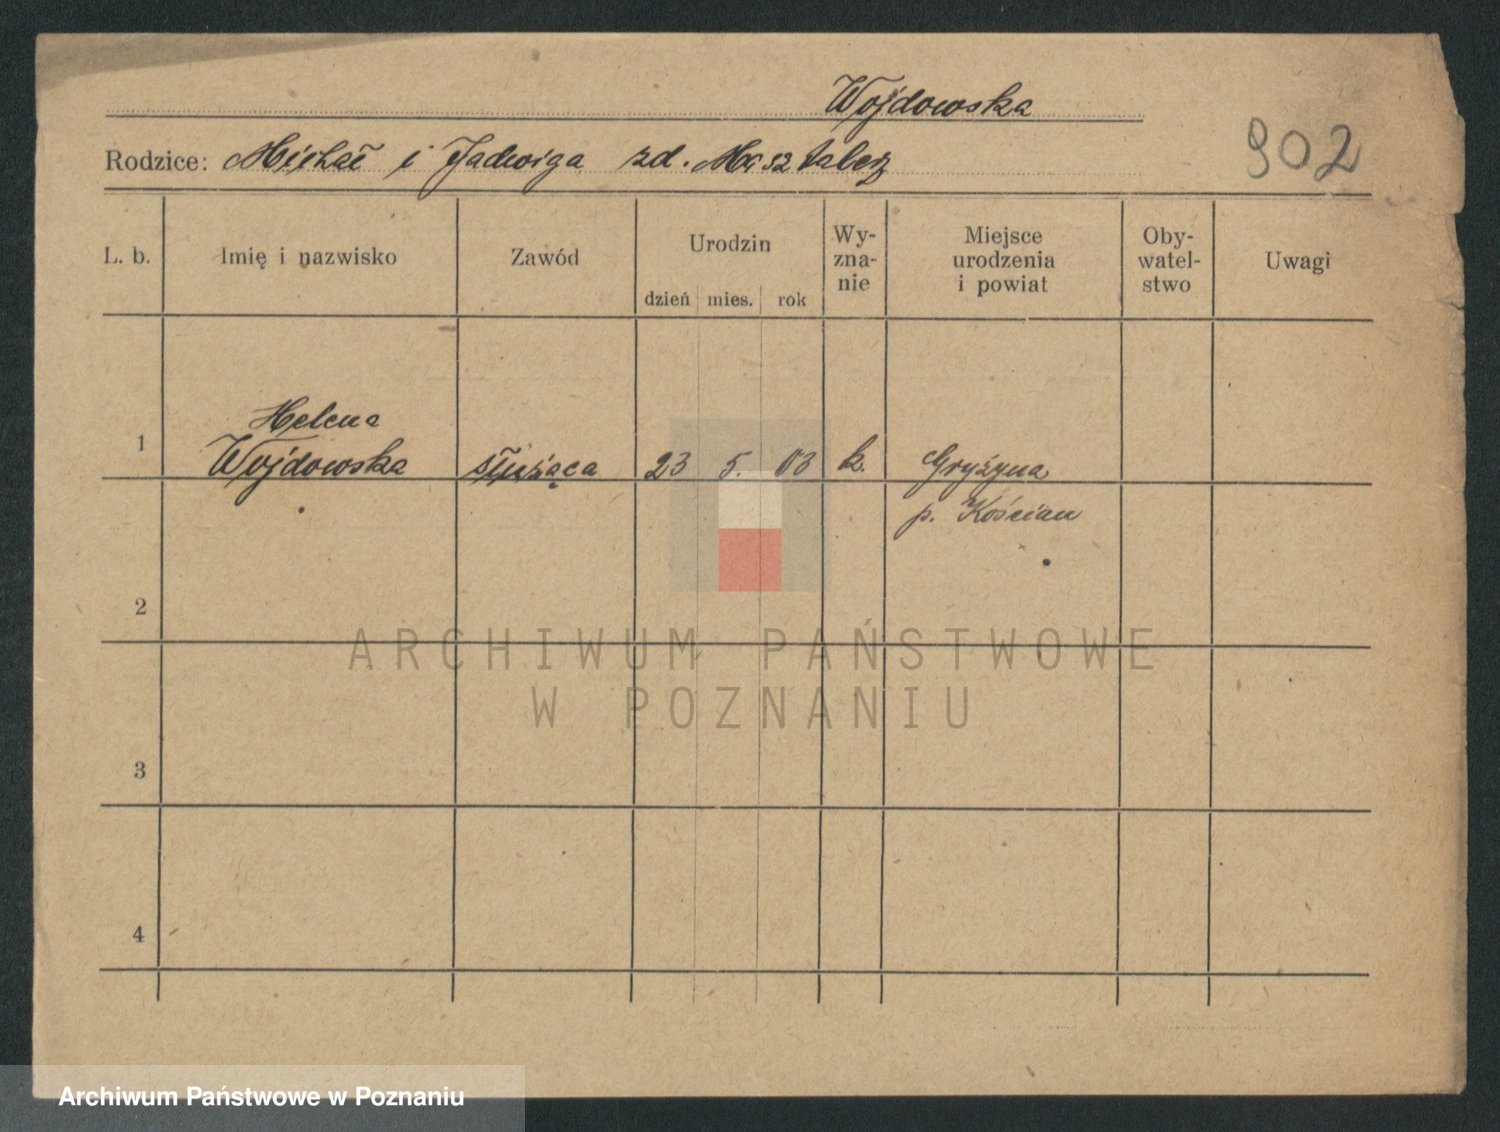 Wojdowska
902
Rodzice: Michał i Jadwiga zd. Masztalerz
L. b. Imię i nazwisko Zawód Urodzin Wy-zna-nie Miejsce urodzenia i powiat Oby-watel-stwo Uwagi
dzień mies. rok
Helena
1 Wojdowska służąca 23 5. 03 k. Gryżyna
p. Kościan
2
ARCHIWUM PAŃSTWOWE
W POZNANIU
3
4
Archiwum Państwowe w Poznaniu